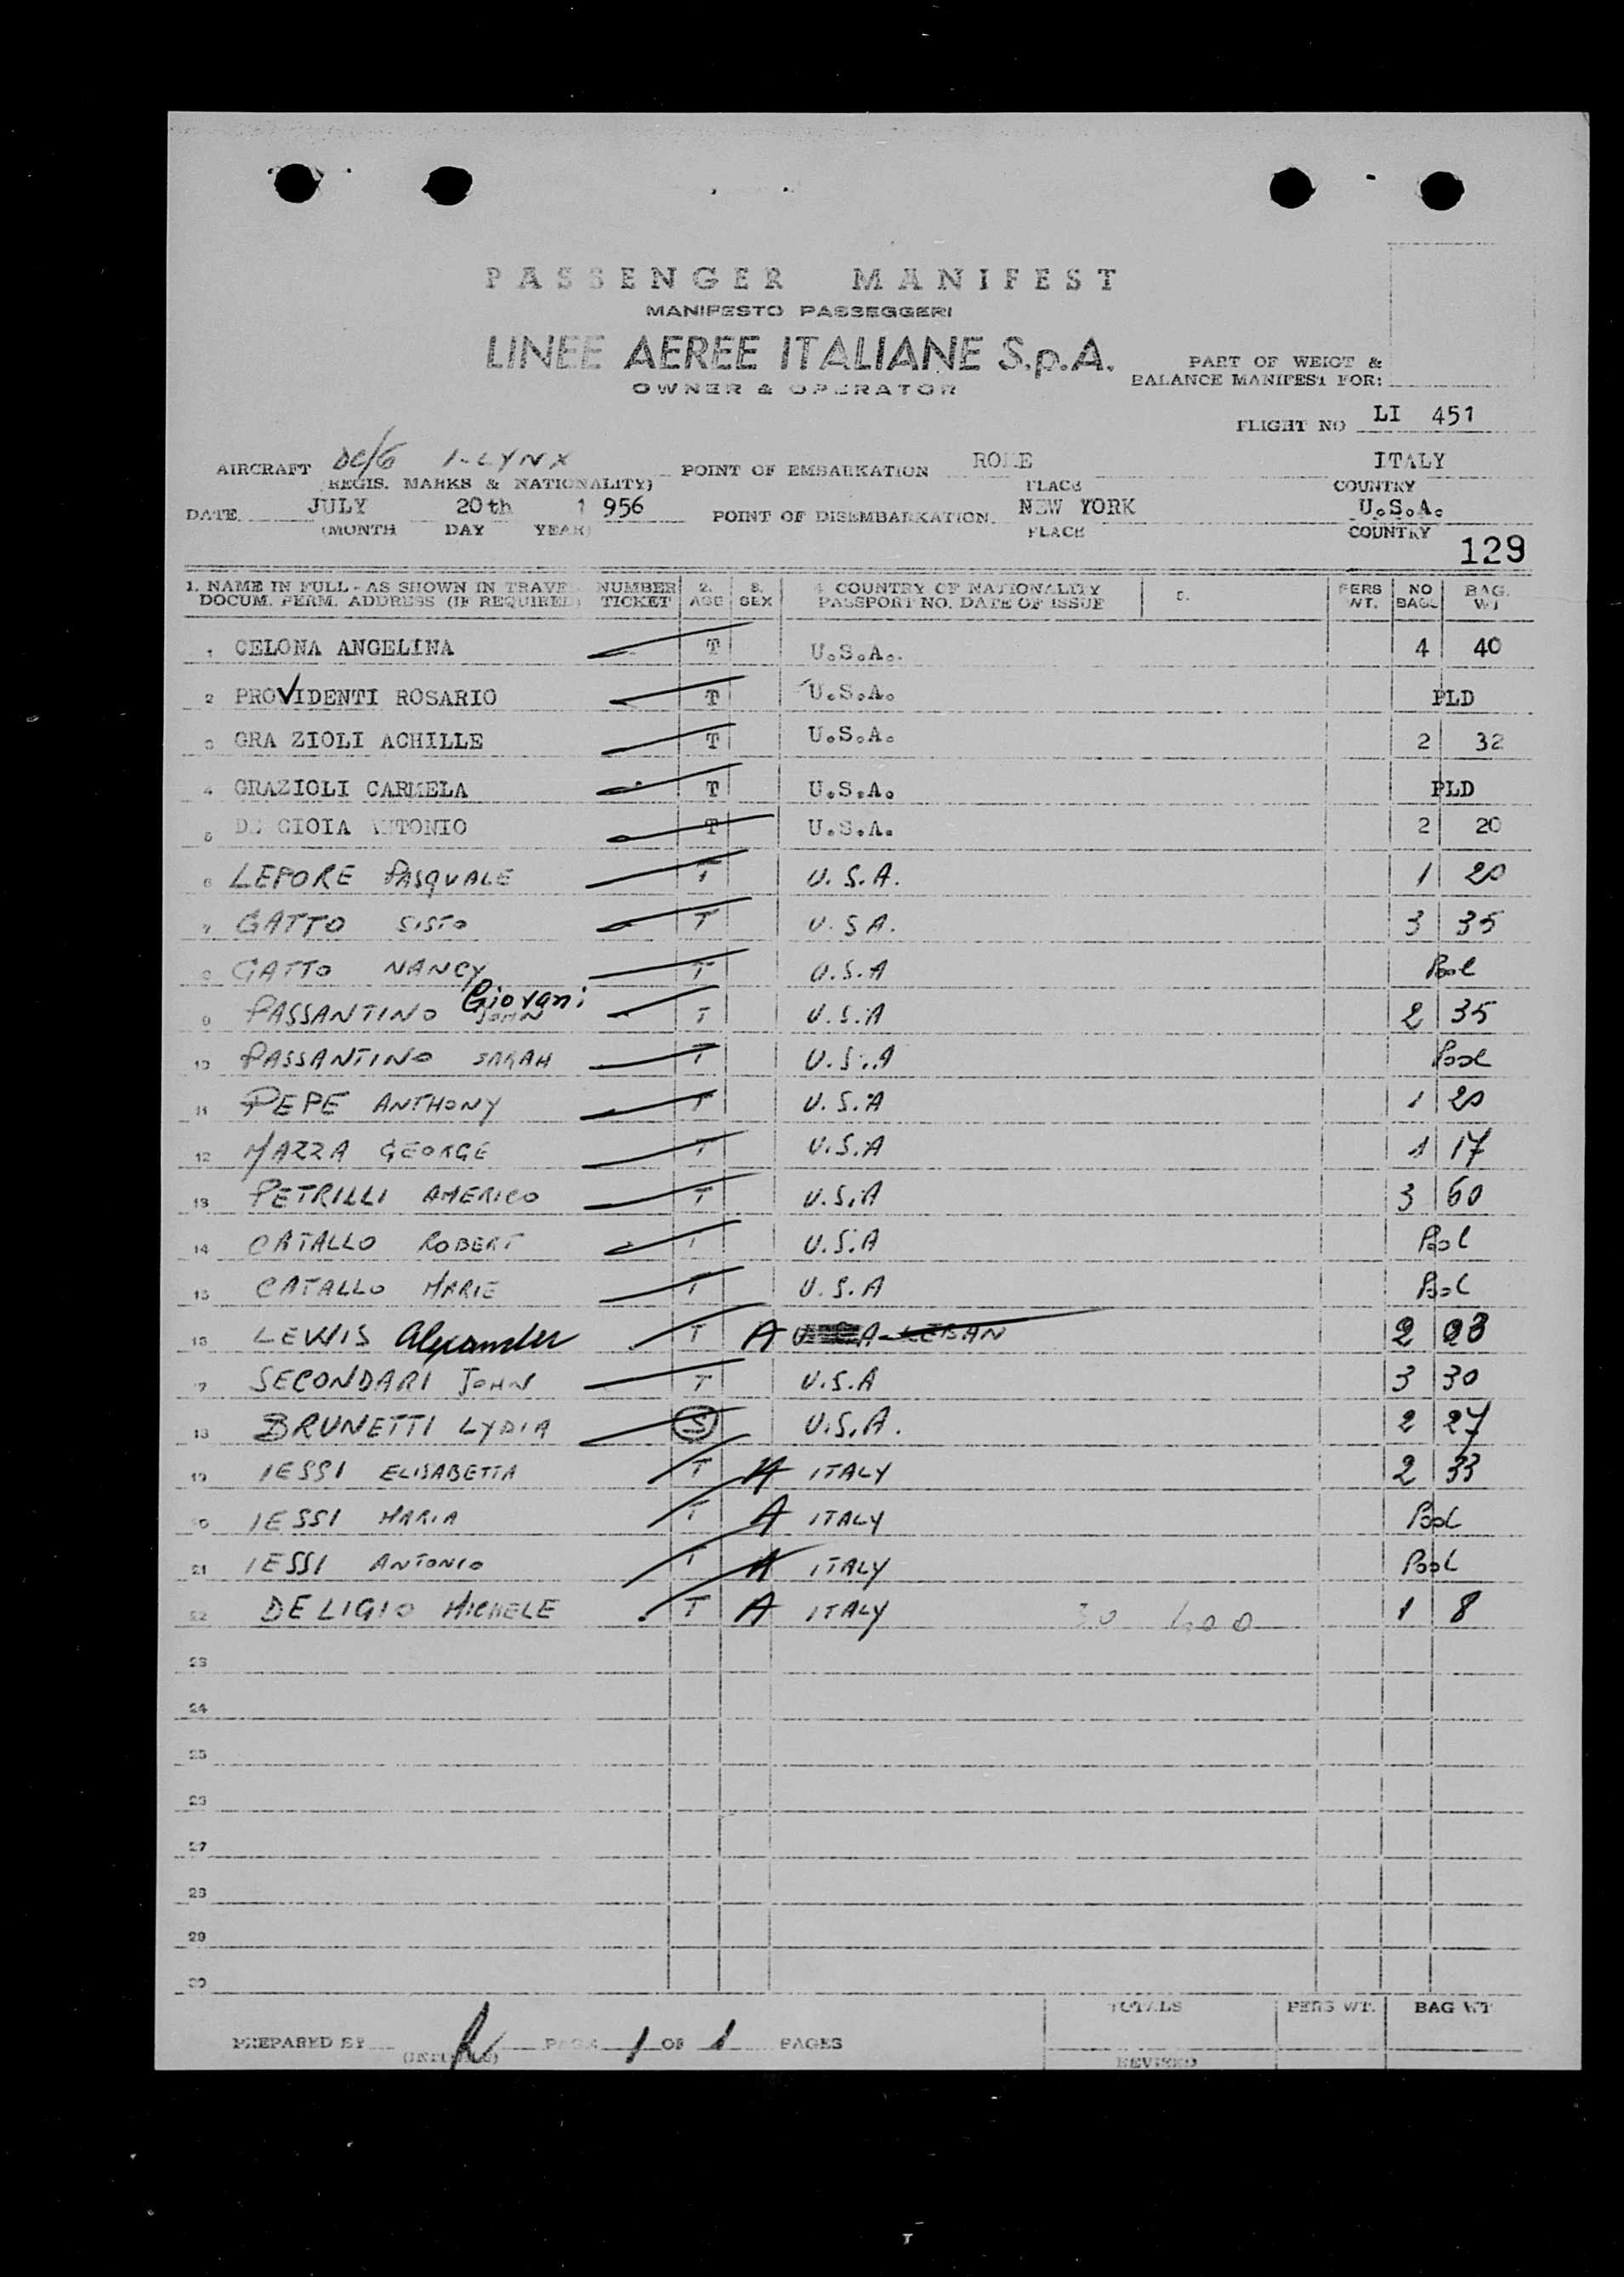 PASSENGER MANIFEST
MANIFESTO PASSEGGERI
LINEE AEREE ITALIANE S.p.A.
OWNER & OPERATOR
PART OF WEIGT &
BALANCE MANIFEST FOR:
FLIGHT NO LI 451
AIRCRAFT DC/6 I-LYNX POINT OF EMBARKATION ROME ITALY
(REGIS. MARKS & NATIONALITY) PLACE COUNTRY
DATE JULY 20th 1 956 POINT OF DISEMBARKATION NEW YORK U.S.A.
(MONTH DAY YEAR) PLACE COUNTRY
129
1. NAME IN FULL - AS SHOWN IN TRAVEL NUMBER 2. 3. 4. COUNTRY OF NATIONALITY 5. PERS NO BAG.
DOCUM. PERM. ADDRESS (IF REQUIRED) TICKET AGE SEX PASSPORT NO. DATE OF ISSUE WT. BAGS WT
1 CELONA ANGELINA T U.S.A. 4 40
2 PROVIDENTI ROSARIO T U.S.A. PLD
3 GRA ZIOLI ACHILLE T U.S.A. 2 32
4 GRAZIOLI CARMELA T U.S.A. PLD
5 DE GIOIA ANTONIO T U.S.A. 2 20
6 LEPORE PASQUALE T U.S.A. 1 20
7 GATTO SISTO T U.S.A. 3 35
8 GATTO NANCY T U.S.A Pool
Giovani
9 PASSANTINO JOHN T U.S.A 2 35
10 PASSANTINO SARAH T U.S.A Pool
11 PEPE ANTHONY T U.S.A 1 20
12 MAZZA GEORGE T U.S.A 1 17
13 PETRILLI AMERICO T U.S.A 3 60
14 CATALLO ROBERT T U.S.A Pool
15 CATALLO MARIE T U.S.A Pool
16 LEWIS Alexander T A LEBAN 2 23
17 SECONDARI JOHN T U.S.A 3 30
18 BRUNETTI LYDIA S U.S.A. 2 27
19 IESSI ELISABETTA T A ITALY 2 33
20 IESSI MARIA T A ITALY Pool
21 IESSI ANTONIO T A ITALY Pool
22 DE LIGIO MICHELE T A ITALY 1 8
23
24
25
26
27
28
29
30
TOTALS PERS WT. BAG WT
PREPARED BY PAGE 1 OF 1 PAGES
(INITIALS) REVISED